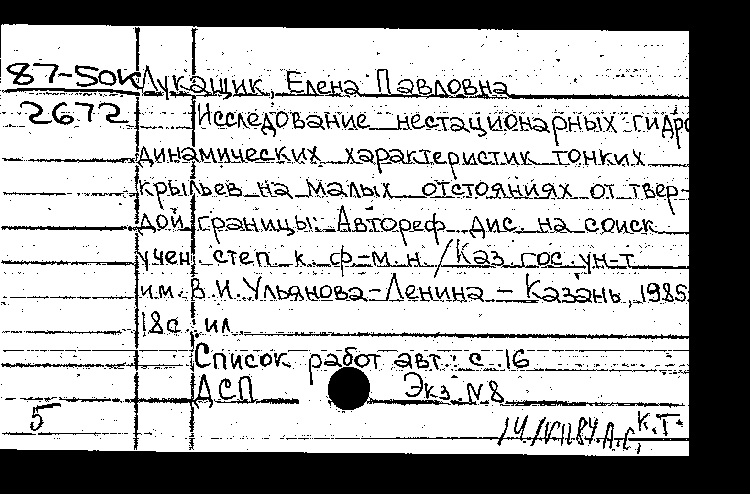 87-50к Лукащик, Елена Павловна
2672 Исследование нестационарных гидро
динамических характеристик тонких
крыльев на малых отстояниях от твер-
дой границы: Автореф. дис. на соиск.
учен. степ. к. ф-м. н. / Каз. гос. ун-т
им. В. И. Ульянова-Ленина - Казань, 1985.
18с. ил.
Список работ авт.: с. 16
ДСП Экз. N8
5
А.С. К.Т.